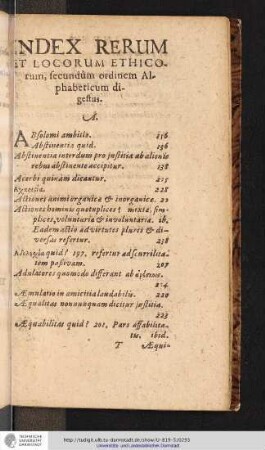 INDEX RERUM
ET LOCORUM ETHICO-
rum, secundùm ordinem Al-
phabeticum di-
gestus.
A.
ABsolomi ambitio. 116
Abstinentia quid. 196
Abstinentia interdum pro justitia ab alienis
rebus abstinente accipitur. 138
Acerbi quinam dicantur. 205
228
Actiones animi organicæ & inorganicæ. 20
Actiones hominis quotuplices? mixtæ, sim-
plices, voluntariæ & involuntariæ. ib.
Eadem actio ad virtutes plures & di-
versas refertur. 238
quid? 197, refertur ad scurrilita-
tem positivam. 207
Adulatores quomodo differant ab
214
Æmulatio in amicitia laudabilis. 220
Æqualitas nonnunquam dicitur justitia.
223
Æquabilitas quid? 201. Pars affabilita-
tis. ibid.
T Æqui-
TECHNISCHE
UNIVERSITÄT
DARMSTADT
Universitäts- und Landesbibliothek Darmstadt